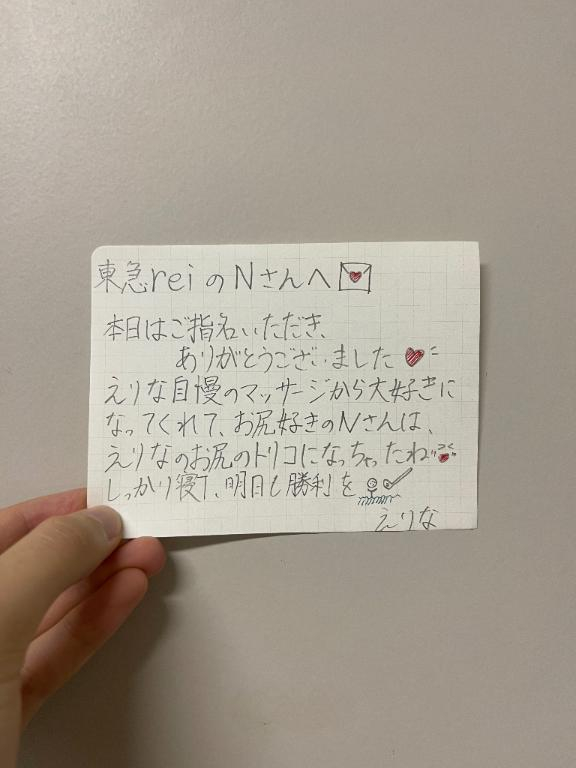 東急reiのNさんへ
本日はご指名いただき、
ありがとうございました
えりな自慢のマッサージから大好きに
なってくれて、お尻好きのNさんは、
えりなのお尻のトリコになっちゃったね
しっかり寝て、明日も勝利を
えりな